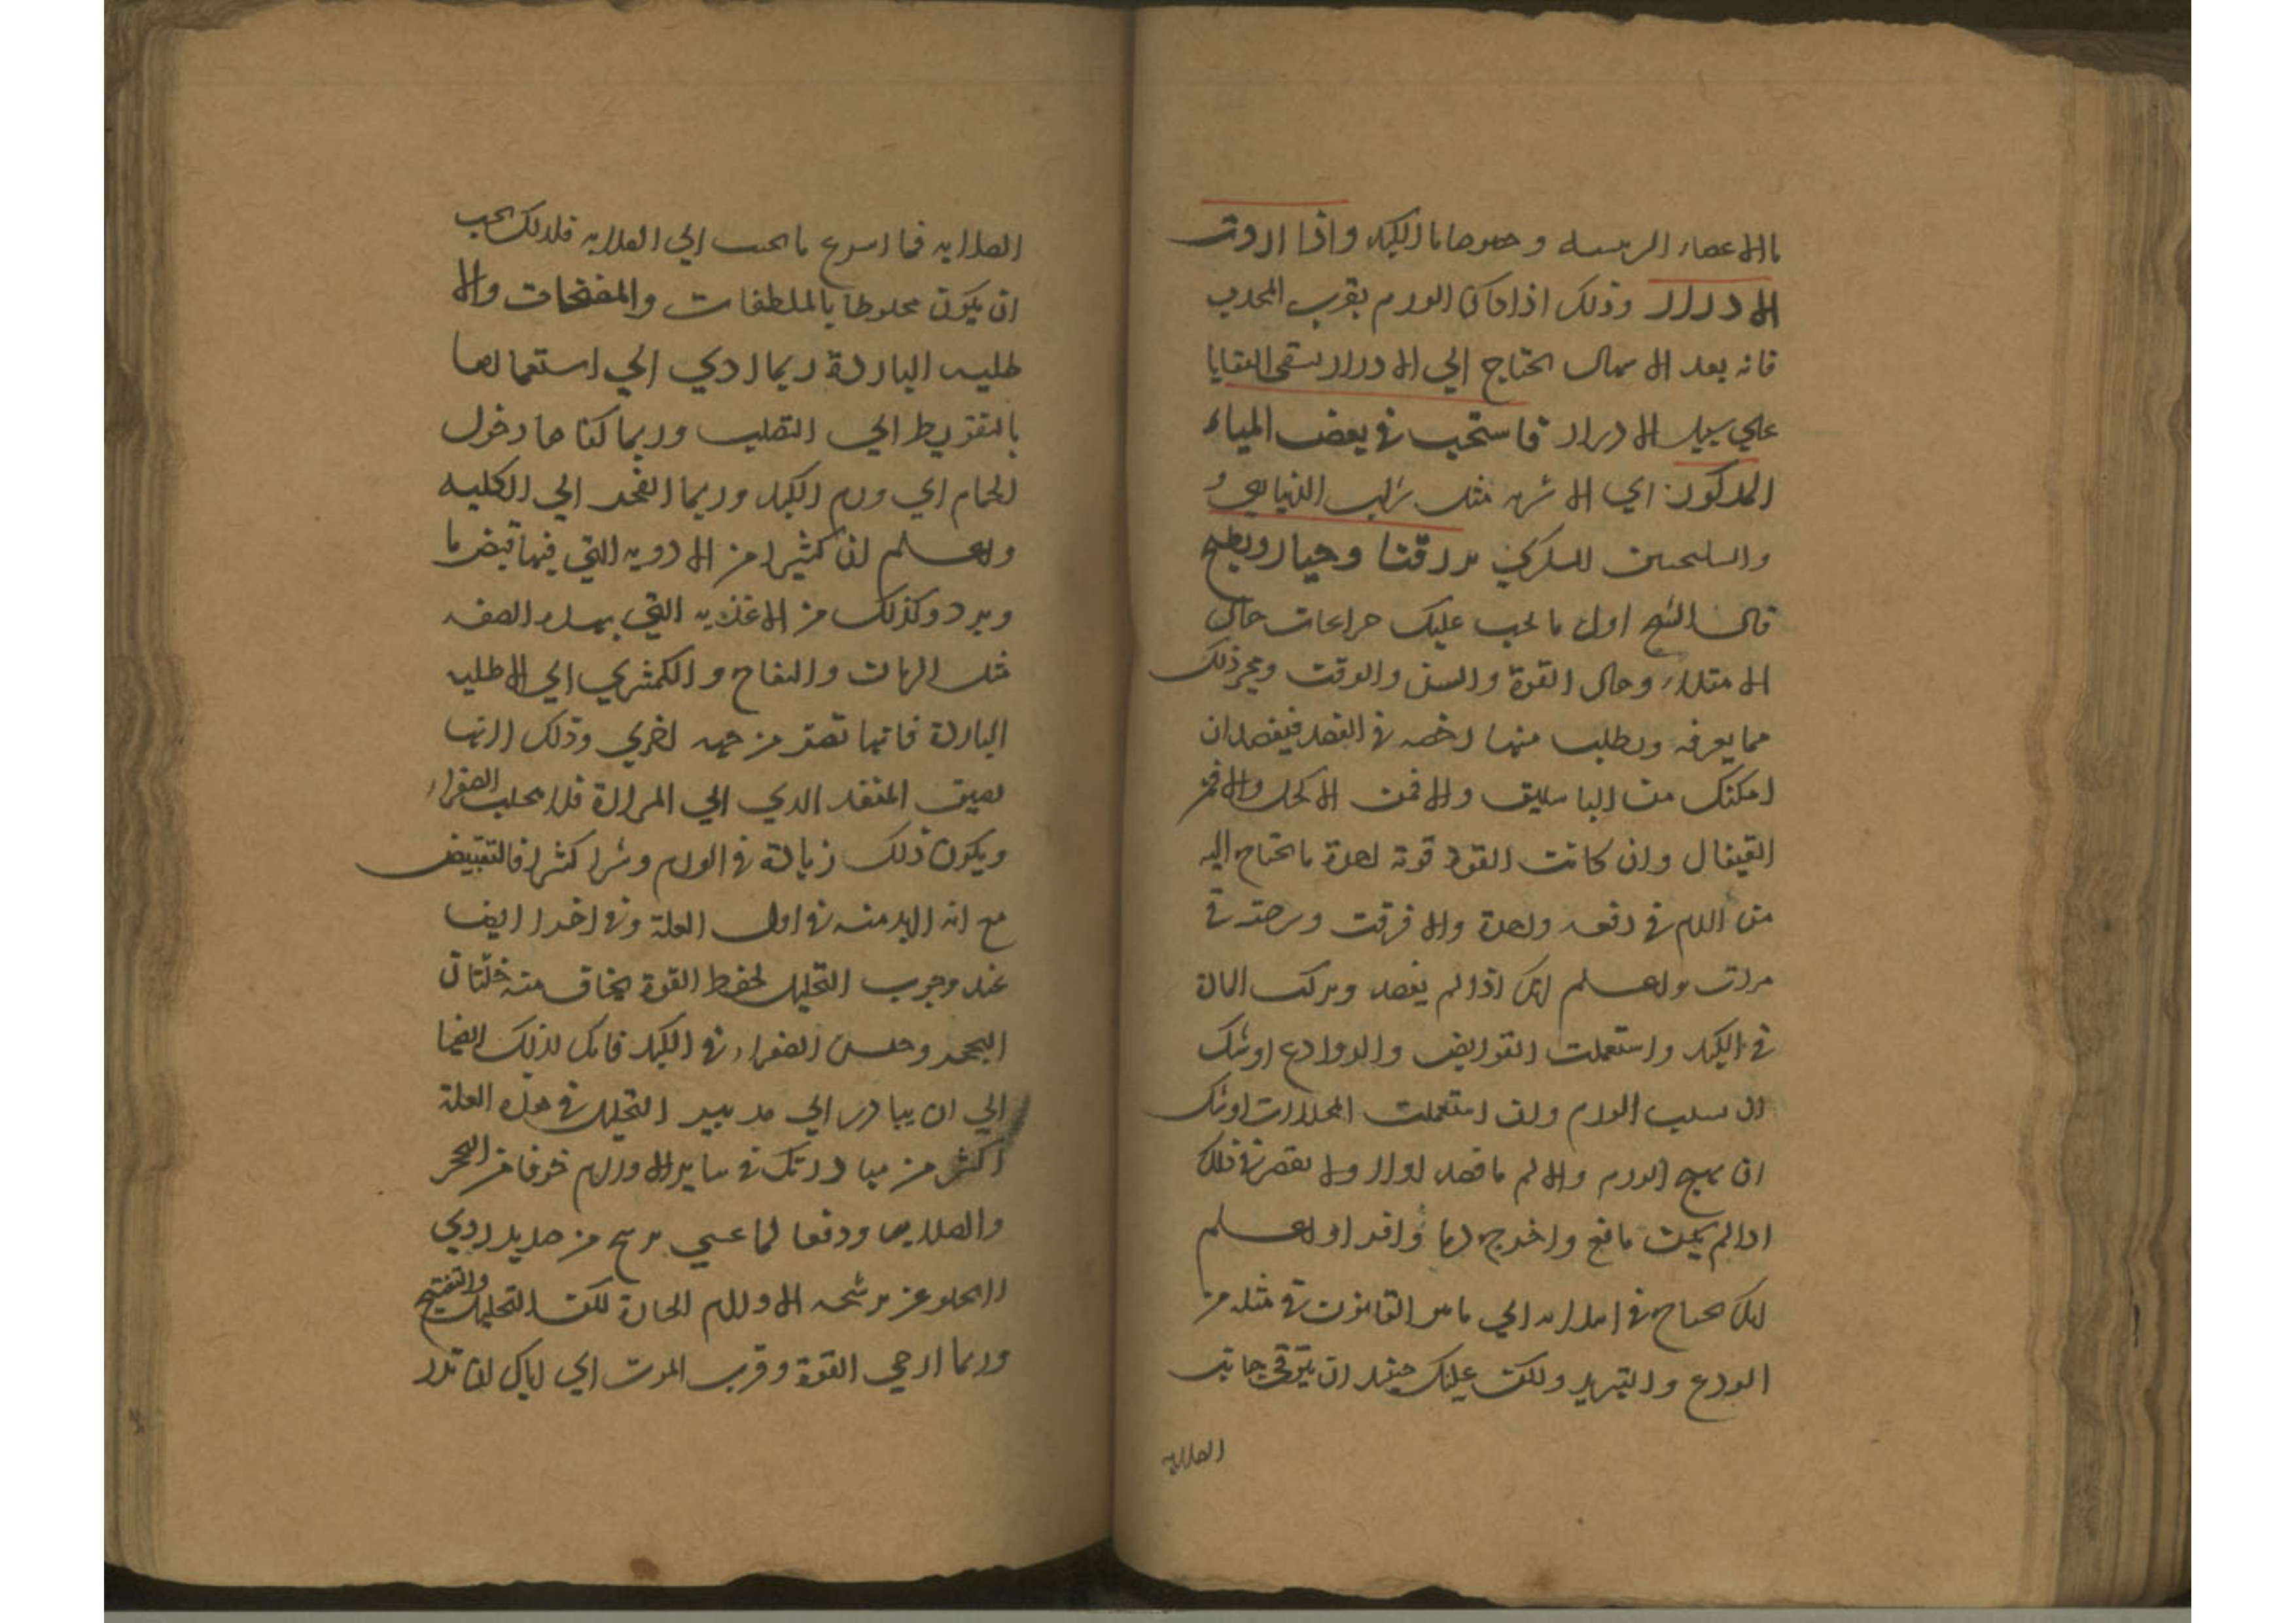 بالاعضاء الرييسه وخصوصا بالكبد واذا اردت
الادرار وذلك اذا كان الورم بقرب المحدب
فانه بعد الاسهال يحتاج الي الادرار لينقي البقايا
علي سبيل الادرار فاستحب في بعض المياء
المذكورة اي الاشربه مثل شراب
والسكنجبين السكري ببزر قثا وخيار وبطيخ
قال الشيخ اول ما يجب عليك مراعات حال
الامتلاء وحال القوة والسن والوقت وغير ذلك
مما يعرفه ويطلب منها رخصه في الفصد فيفصد ان
امكنك من الباسليق والا فمن الاكحل والا فمن
القيفال وان كانت القوة قوية اخذت ما تحتاج اليه
من الدم في دفعه واحدة والا فرقت وسرحته في
مرات واعلم انك اذا لم يفصد وتركت المادة
في الكبد واستعملت القوابض والروادع اوشك
ان يصلب الورم وان استعملت المحللات اوشك
ان يهيج الورم والالم فافصد اولا ولا تقصر في ذلك
اذا لم يكن مانع واخرج دما وافرا واعلم
انك تحتاج في ابتدايه الي ما هو القانون في مثله من
الردع والتبريد ولكن عليك حينئذ ان تتوقي جانب
الصلابه
الصلابه فما اسرع ما يجيب الي الصلابه فلذلك يجب
ان يكون مخلوطا بالملطفات والمفتحات والا
طليه الباردة ربما ادي الي استعمالها
بالتفريط الي التصليب وربما كفاها دخول
الحمام اي ورم الكبد وربما انفجر الي الكليه
واعلم ان كثيرا من الادويه التي فيها قبض ما
وبرد وكذلك من الاغذيه التي بهذه الصفه
مثل الرمان والتفاح والكمثري اي الاطليه
الباردة فانها تضر من جهه اخري وذلك لانها
تضيق المنفذ الذي الي المرارة فلا يتحلب الصفراء
ويكون ذلك زيادة في الورم وشرا كثيرا فالتقبيض
مع انه لابد منه في اول العلة وفي اخرها ايضا
عند وجوب التحليل لحفظ القوة يخاف منه خلتان
التحجر وحبس الصفراء في الكبد
الي ان يبادر الي تدبير التحليل في هذه العلة
اكثر من مبادرتك في ساير الاورام خوفا من التحجر
والصلابه ودفعا لما عسي يرشح من صديد ردي
لا يخلو عن ترشحه الاورام الحارة لكن التحليل والتفتيح
وربما ارخي القوة وقرب الموت اي اياك ان تدر